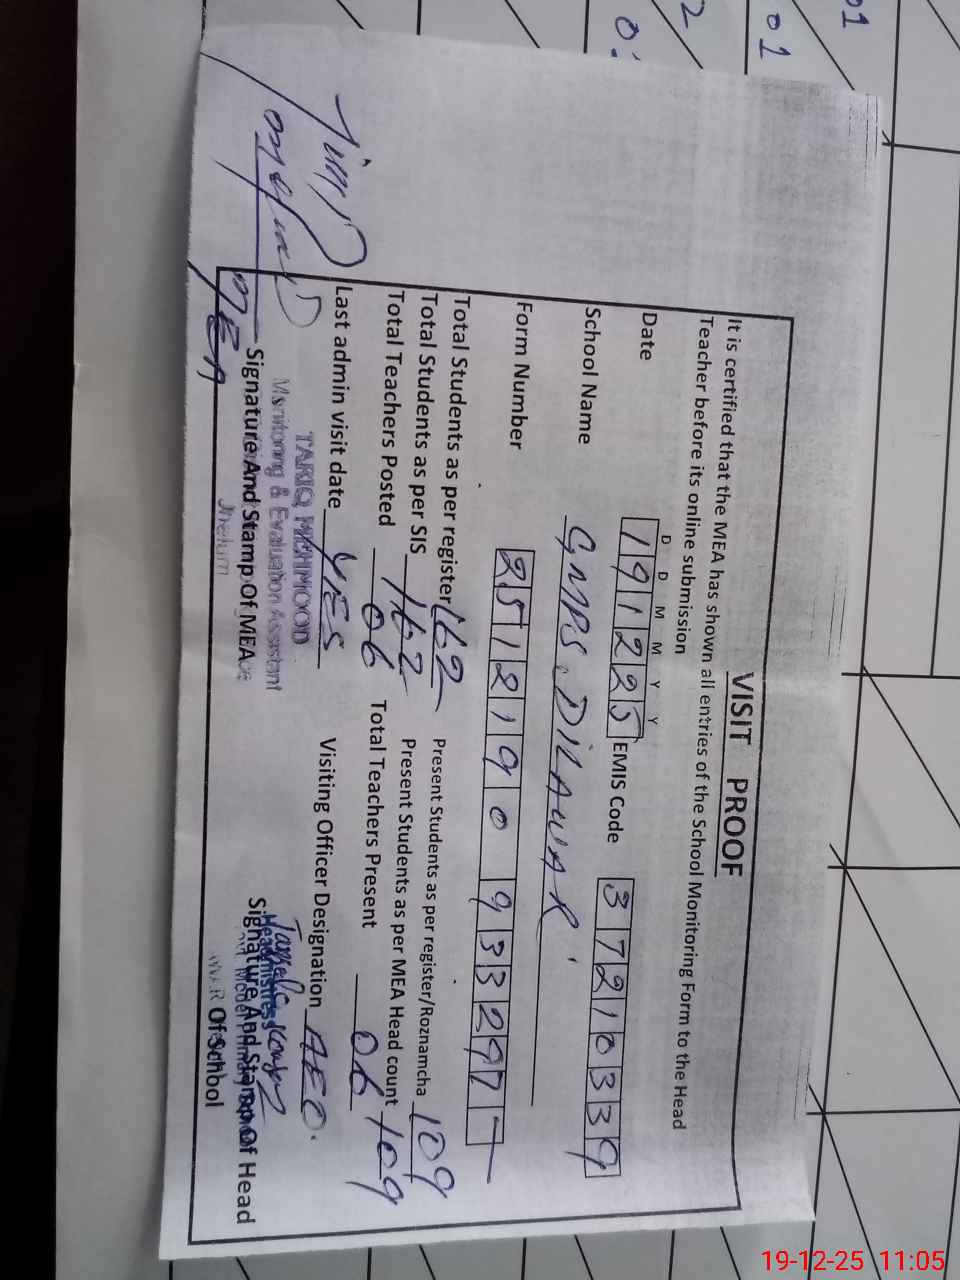 VISIT PROOF
It is certified that the MEA has shown all entries of the School Monitoring Form to the Head
Teacher before its online submission
D D M M Y Y
Date 191225 EMIS Code 37210339
School Name GMPS DILAWAR
Form Number 2512190 933297
Total Students as per register 162 Present Students as per register/Roznamcha 109
Total Students as per SIS 162 Present Students as per MEA Head count 109
Total Teachers Posted 06 Total Teachers Present 06
Last admin visit date YES Visiting Officer Designation AEO.
TARIQ MEHMOOD
Monitoring & Evaluation Assistant
Jhelum
Signature And Stamp Of MEA
MEA
Headmistress
Signature And Stamp Of Head
Of School
01
2
01
19-12-25 11:05